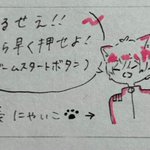 るせえ!!
ら早く押せよ!
ームスタートボタン)
にゃいこ